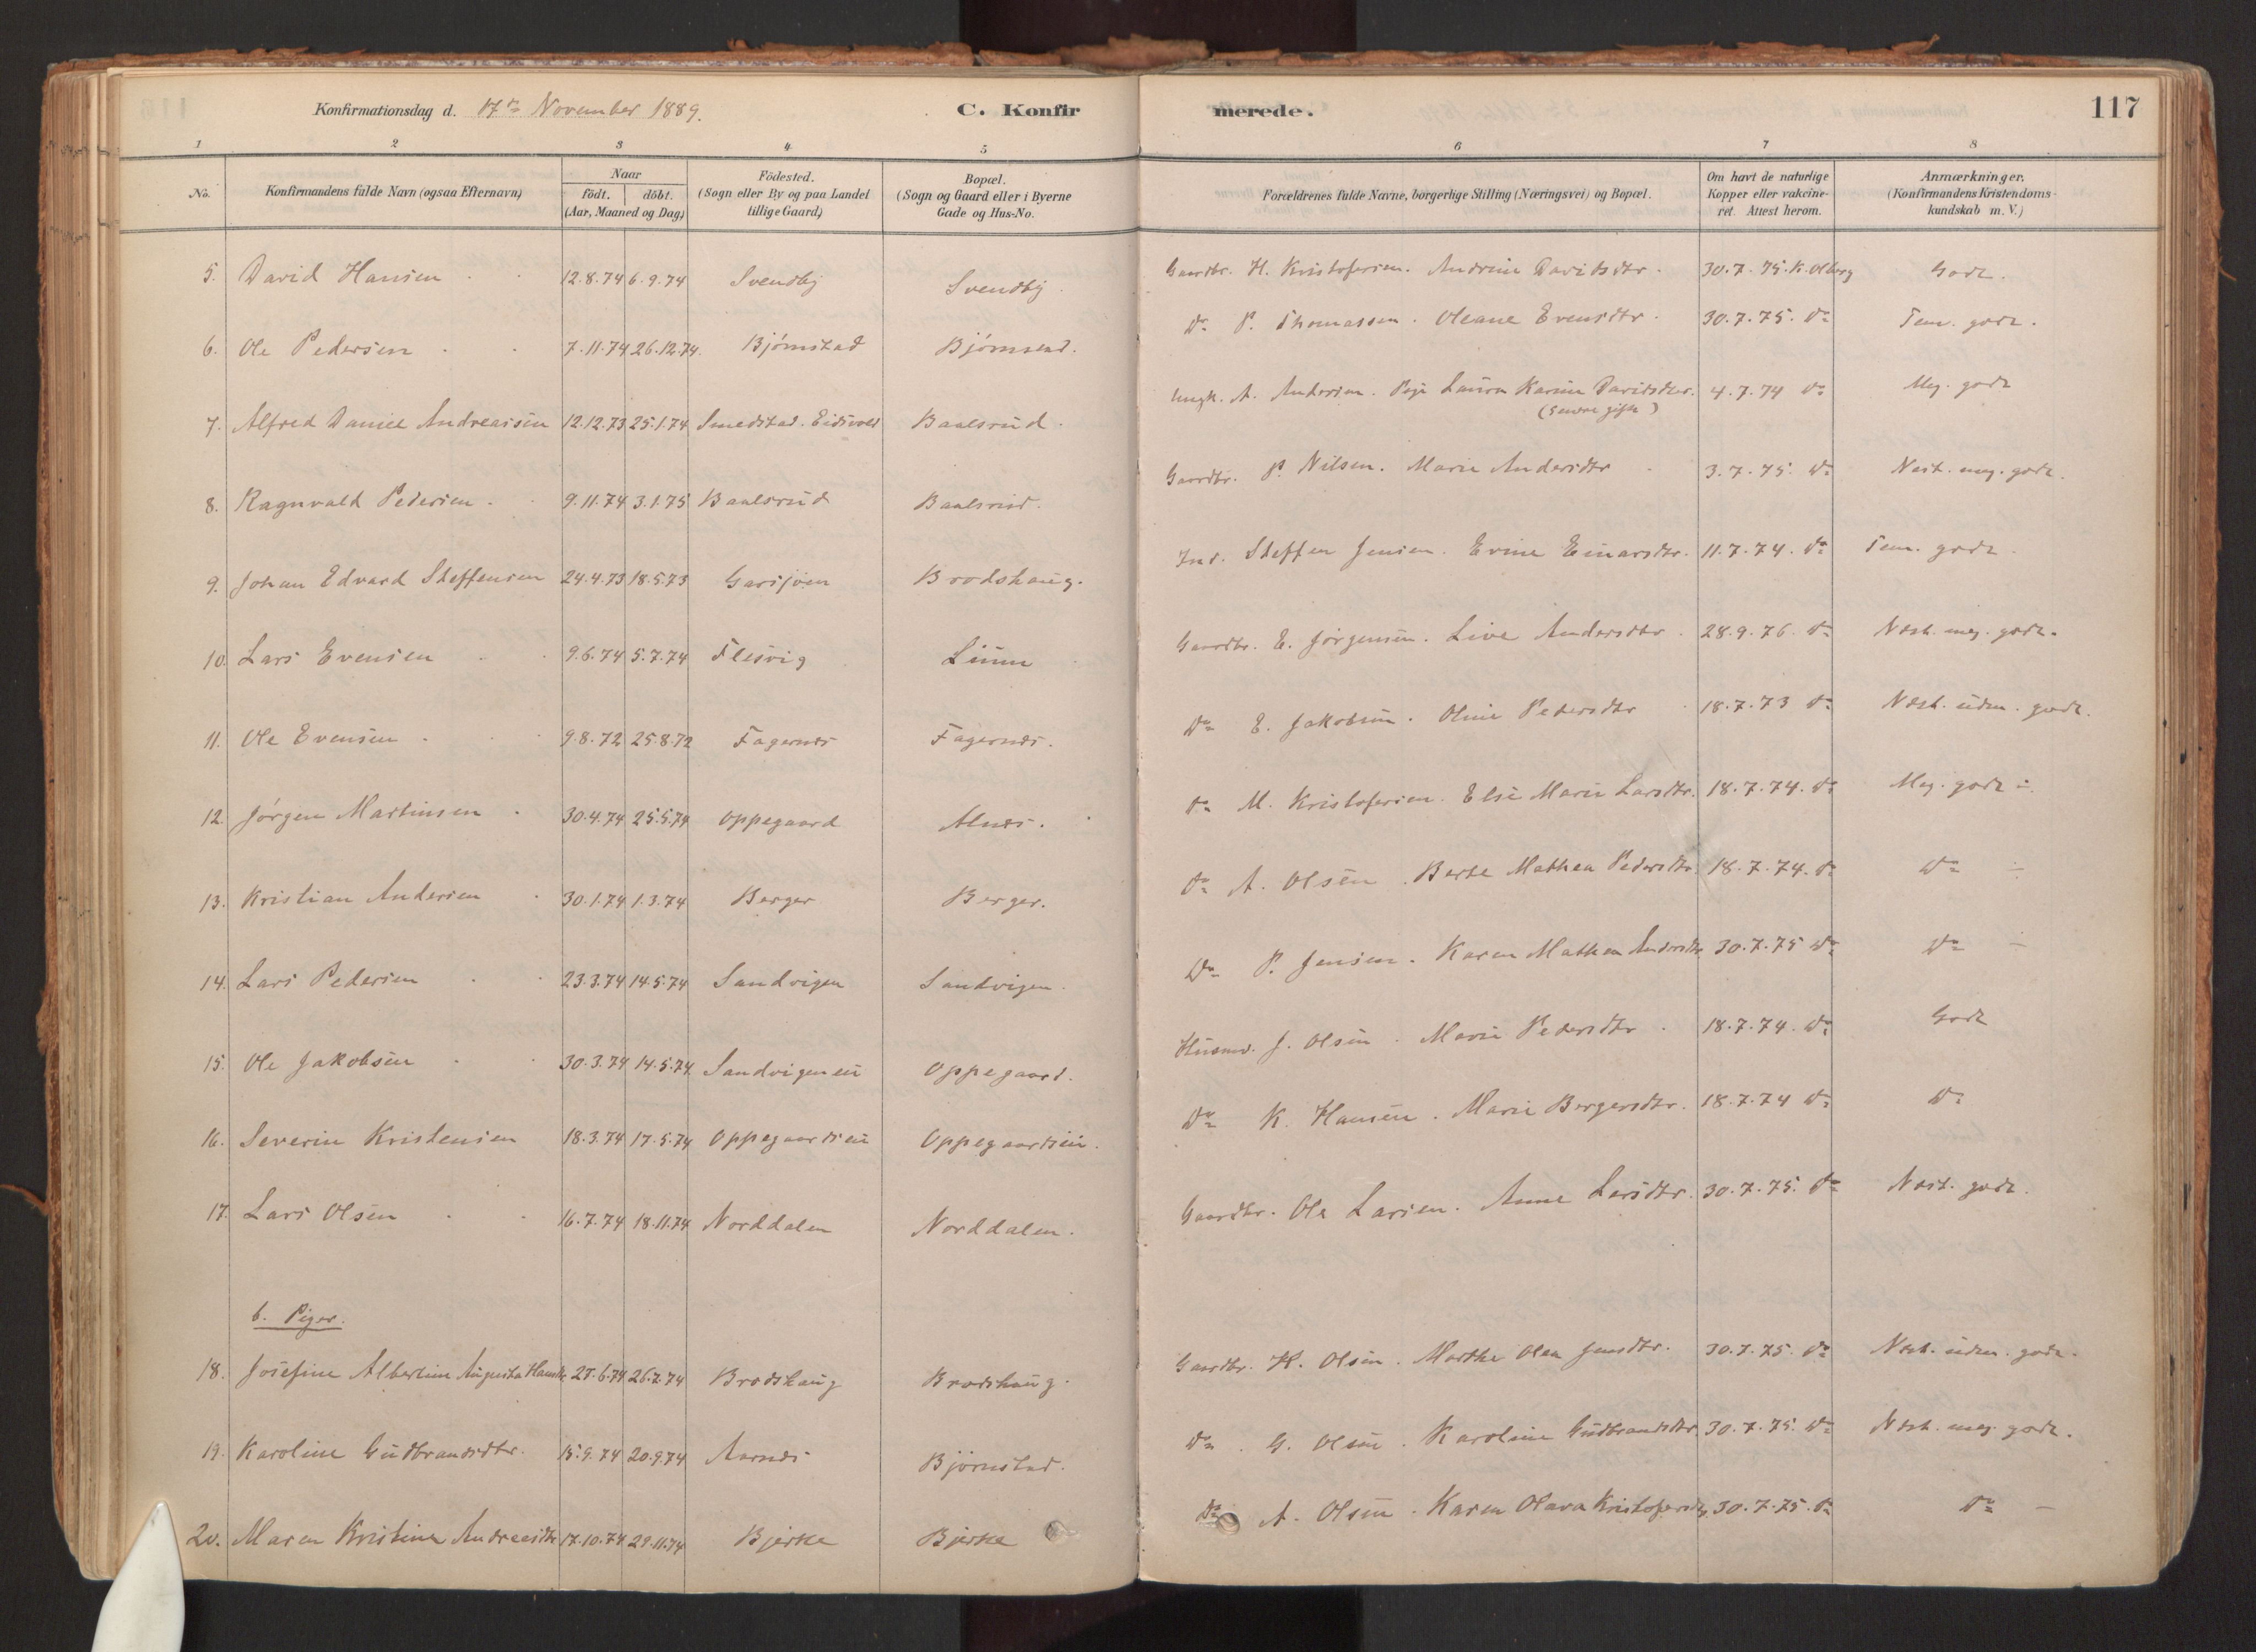 Konfirmationsdag d. 17de November 1889. C. Konfirmerede. 117
1 2 3 4 5 6 7 8
No. Konfirmandens fulde Navn (ogsaa Efternavn) Naar födt. döbt. (Aar, Maaned og Dag) Födested. (Sogn eller By og paa Landet tillige Gaard) Bopæl. (Sogn og Gaard eller i Byerne Gade og Hus-No. Forældrenes fulde Navne, borgerlige Stilling (Næringsvei) og Bopæl. Om havt de naturlige Kopper eller vakcineret. Attest herom. Anmærkninger. (Konfirmandens Kristendomskundskab m. V.)
5. David Hansen 12.8.74 6.9.74 Svendby Svendby. Gaardbr. H. Kristofersen. Andrine Davidsdtr. 30.7.75. K. Olberg Godt.
6. Ole Pedersen 7.11.74 26.12.74. Bjørnstad Bjørnstad. Do P. Thomassen. Oleane Evensdtr. 30.7.75. do Tem. godt.
7. Alfred Daniel Andreassen 12.12.73 25.1.74 Smedstad. Eidsvold Baalsrud. Ungk. A. Andersen. Pige Laura Karine Davidsdtr. (senere gift) 4.7.74 do Meg. godt
8. Ragnvald Pedersen. 9.11.74 3.1.75 Baalsrud Baalsrud. Gaardbr. P. Nilsen. Marie Andersdtr 3.7.75. do Næst. meg. godt.
9. Johan Edvard Steffensen 24.4.73 18.5.73 Garsjøen Brodshaug. Ind. Steffen Jensen. Evine Einarsdtr. 11.7.74. do Tem. godt.
10. Lars Evensen 9.6.74 5.7.74 Flesvig Linn Gaardbr. E. Jørgensen. Live Andersdtr. 28.9.76. do Næst. meg. godt.
11. Ole Evensen 9.8.72 25.8.72 Fagernæs Fagernæs. Do E. Jakobsen. Oline Pedersdtr 18.7.73 do Næst. udm. godt.
12. Jørgen Martinsen 30.4.74 25.5.74 Oppegaard Alnæs. do M. Kristofersen. Else Marie Larsdtr. 18.7.74. do Meg. godt ÷.
13. Kristian Andersen 30.1.74 1.3.74 Berger Berger. do A. Olsen. Berte Mathea Pedersdtr. 18.7.74. do Do ÷
14. Lars Pedersen 23.3.74 14.5.74 Sandvigen Sandvigen. Do P. Jensen. Karen Mathea Andersdtr 30.7.75 do Do ÷
15. Ole Jakobsen 30.3.74 14.5.74 Sandvigenei Oppegaard. Husmd. J. Olsen. Marie Pedersdtr. 18.7.74. do Godt
16. Severin Kristensen 18.3.74 17.5.74 Oppegaardsei Oppegaardsei. Do K. Hansen. Marie Bergersdtr. 18.7.74 do Do
17. Lars Olsen 16.7.74 18.11.74 Norddalen Norddalen. Gaardbr. Ole Larsen. Anne Larsdtr. 30.7.75. do Næst. godt.
b. Piger.
18. Josefine Albertine Augusta 27.6.74 26.7.74 Brodshaug Brodshaug. Gaardbr. H. Olsen. Marthe Olea Jensdtr. 30.7.75. do Næst. udm. godt.
19. Karoline Gudbrandsdtr. 15.9.74 20.9.74 Aarnæs Bjørnstad. Do G. Olsen. Karoline Gudbrandsdtr. 30.7.75. do Næst. meg. godt.
20. Maren Kristine Andreasdtr 17.10.74 29.11.74 Bjerke Bjerke Do A. Olsen. Karen Olava Kristofersdtr. 30.7.75. do do –